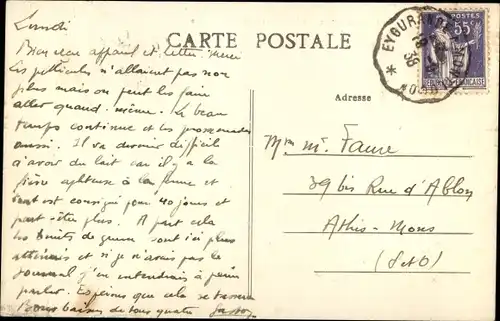 Lundi
Bien reçu appareil et lettre. merci
Les pellicules n'allaient pas non
plus mais on peut les faire
aller quand-même. Le beau
temps continue et les promenades
aussi. Il va devenir difficile
d'avoir du lait car il y a la
fièvre aphteuse à la ferme et
tout est consigné pour 40 jours et
peut-être plus. A part cela
les bruits de guerre sont ici plus
atténués et si je n'avais pas le
journal j'en entendrais à peine
parler. Espérons que cela se tassera
Bons baisers de tous quatre
CARTE POSTALE
Adresse
EYGURANDE
38
POSTES
55c
FRANÇAISE
Mme M. Faure
39 bis Rue d'Ablon
Athis-Mons
(S et O)